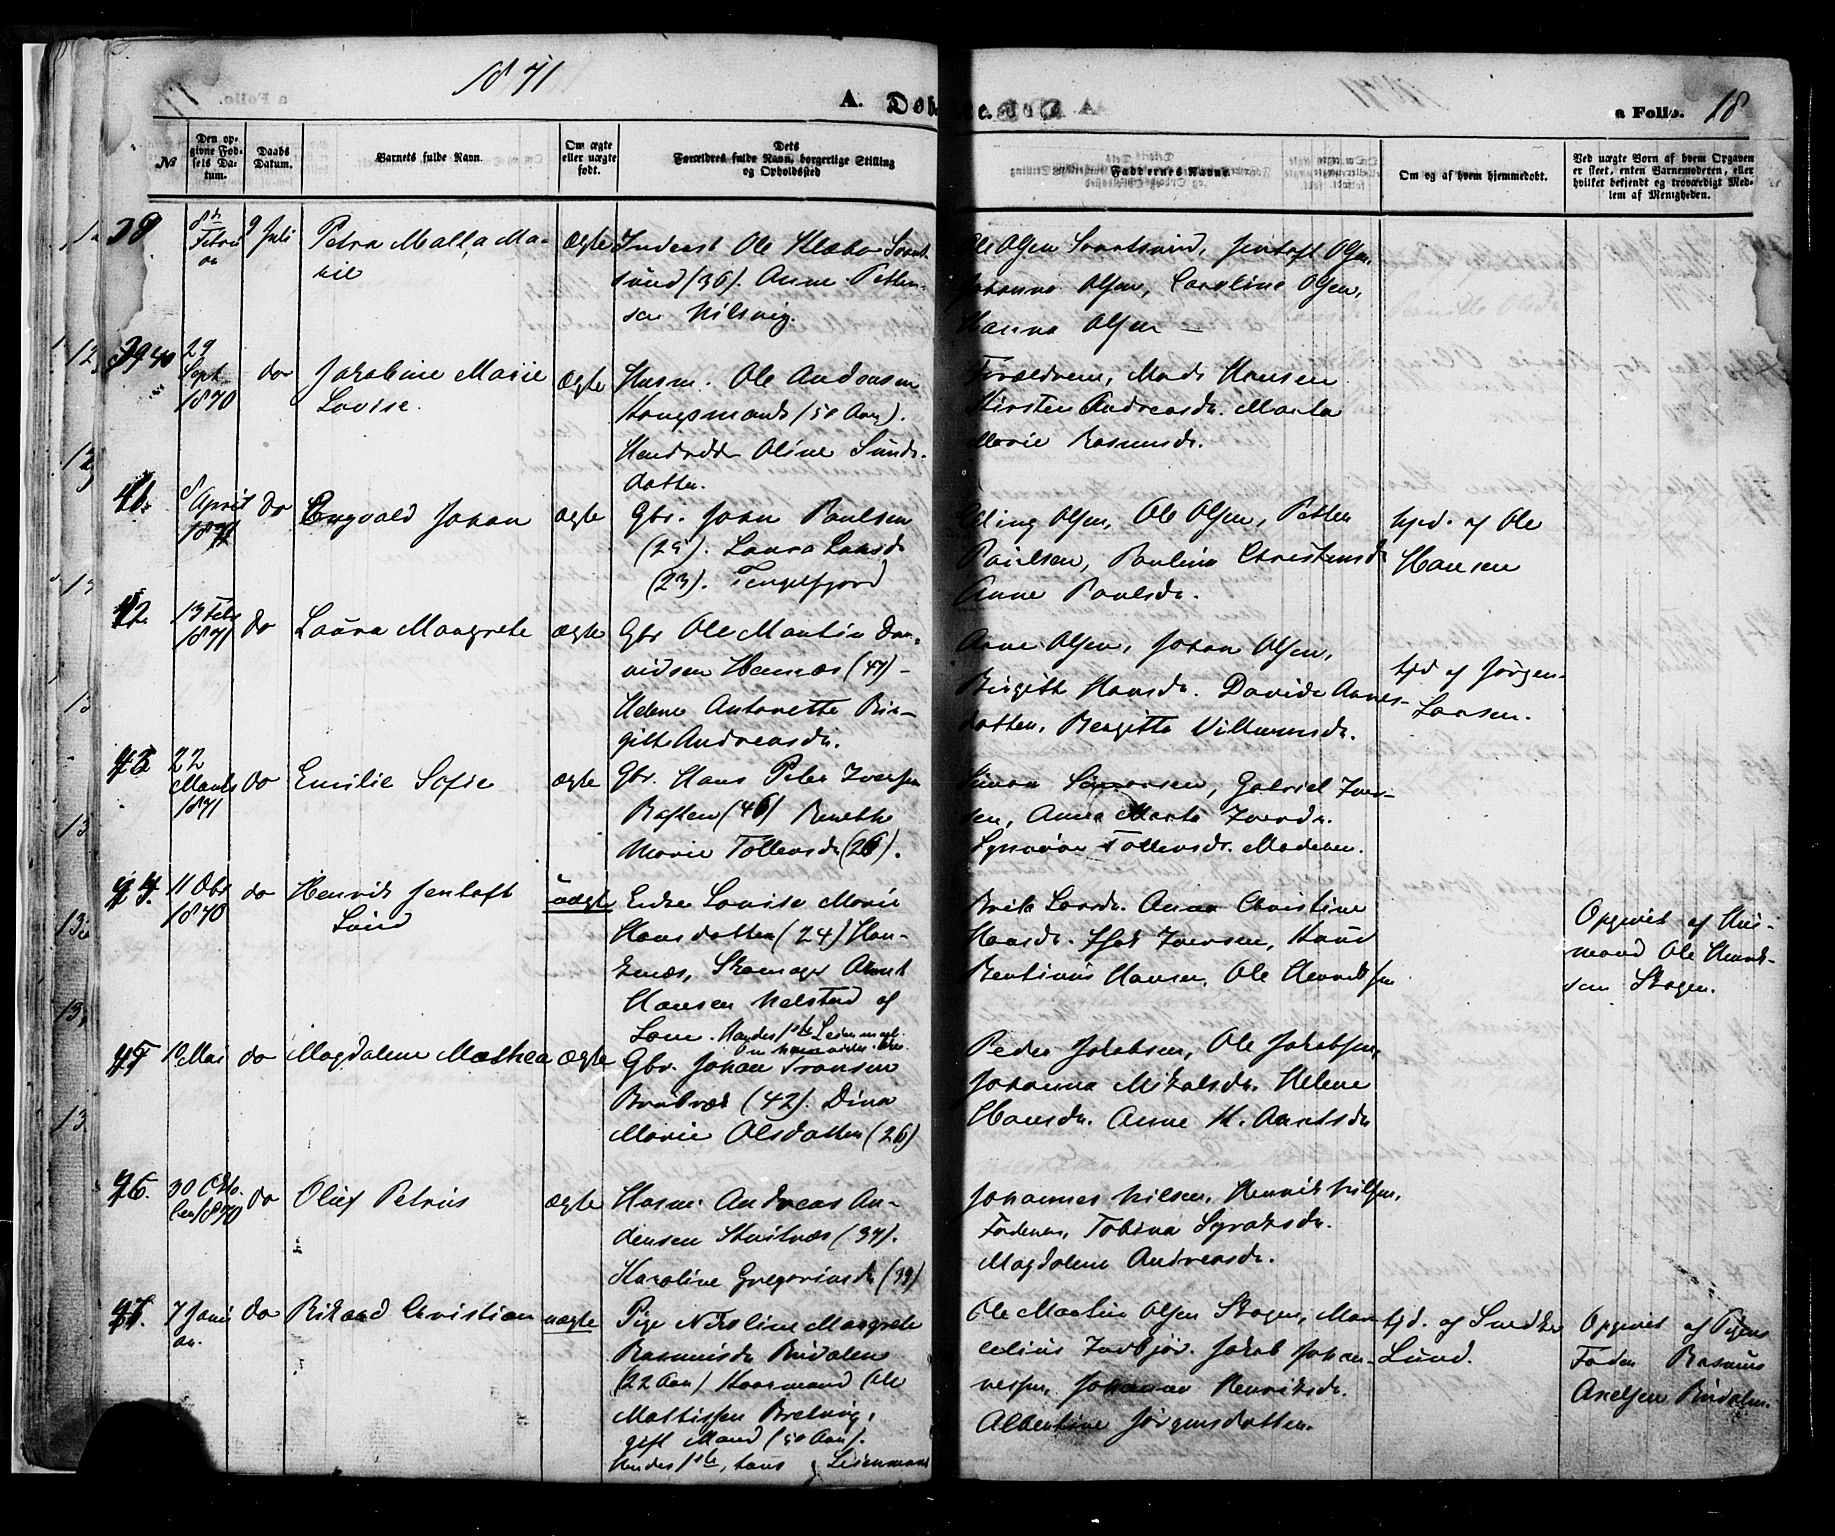 1871
A. Døbte.
a Folio. 18
№
Den opgivne Fødsels Datum.
Daabs Datum.
Barnets fulde Navn.
Om ægte eller uægte født.
Dets Forældres fulde Navn, borgerlige Stilling og Opholdssted
Faddernes Navne.
Om og af hvem hjemmedøbt.
Ved uægte Børn af hvem Opgaven er skeet, enten Barnemoderen, eller hvilket bekjendt og troværdigt Medlem af Menigheden.
38
9 Juli
Petra Malla
ægte
Inderst Ole
(36). Anne Petter-
sen Nilsvig.
Ole Olsen Svartsund, Jentoft Olsen,
Johanna Olsen, Caroline Olsen,
Hanna Olsen
40
29
Sept
1870
do
Jakobine Marie
Lovise.
ægte
Husm. Ole Andersen
(50 Aar).
Oline Sunds-
datter.
Forældrene, Mads Hansen
Kirsten Andreasdr. Marta
Marie Rasmusdr.
41.
8 April
1871
do
Engvald Johan
ægte
Gbr. Johan Paulsen
(25). Laura Larsdr
(23). Tengelfjord
Eling Olsen, Ole Olsen, Petter
Paulsen, Paulina Christensdr
Anne Paulsdr.
hjd. af Ole
Hansen
42.
13 Feb
1871
do
Laura Margrete
ægte
Gbr Ole Martin Da-
vidsen Hemnæs (47) -
Helene Antonette Bir-
gitte Andreasdr.
Arne Olsen, Johan Olsen,
Birgitte Hansdr. Davida Arnes-
datter, Bergitta Villumsdr.
hjd af Jørgen
Larsen.
43
22
Marts
1871
do
Emilie Sofie
ægte
Gbr. Hans Peter Iversen
Roften (46) Benethe
Marie Tollevsdr (26).
Simon Simonsen, Gabriel Iver-
sen, Anne Marta Iversdr.
Synnøve Tollevsdr. Moderen.
44.
11 Obr
1870
do
Henrik Jentoft
Lund
uægte
Enke Lovise Marie
Hansdatter (24) Han-
kenæs, Skomager
Hansen Nelstad af
Lom.
Berit Larsdr. Anna Christine
Hansdr. Isak Iversen, Knud
Bentinus Hansen, Ole Henriksen
Opgivet af Hus-
mand Ole Henrik-
sen Skogen.
45
10 Mai
do
Magdalene Mathea
ægte
Gbr. Johan Fransen
Bratnæs (42). Dina
Marie Olsdatter (26)
Peder Jakobsen, Ole Jakobsen,
Johanna Mikalsdr. Helene
Hansdr. Anne M. Arntsdr
46.
30 Okto-
ber 1870
do
Oluf Petrus
ægte
Husm. Andreas An-
dersen (34).
Karoline Gregoriusdr (39)
Johannes Nilsen, Henrik Nilsen,
Faderen, Tobina Syraksdr.
Magdalene Andreasdr.
47.
7 Janu
ar.
do
Rikard Christian
uægte
Pige Nikoline Margrete
Rasmusdr Budalen
(22 Aar) Husmand Ole
Mattissen Bretvig,
gift Mand (50 Aar).
Hendes 1ste, hans 
Ole Martin Olsen Skogen, Mar-
celius Indbjør. Jakob Johan-
nessen, Johanna Henriksdr.
Albertine Jørgensdatter.
hjd. af Snedker
Lund.
Opgivet af Pigens
Fader Rasmus
Axelsen Budalen.